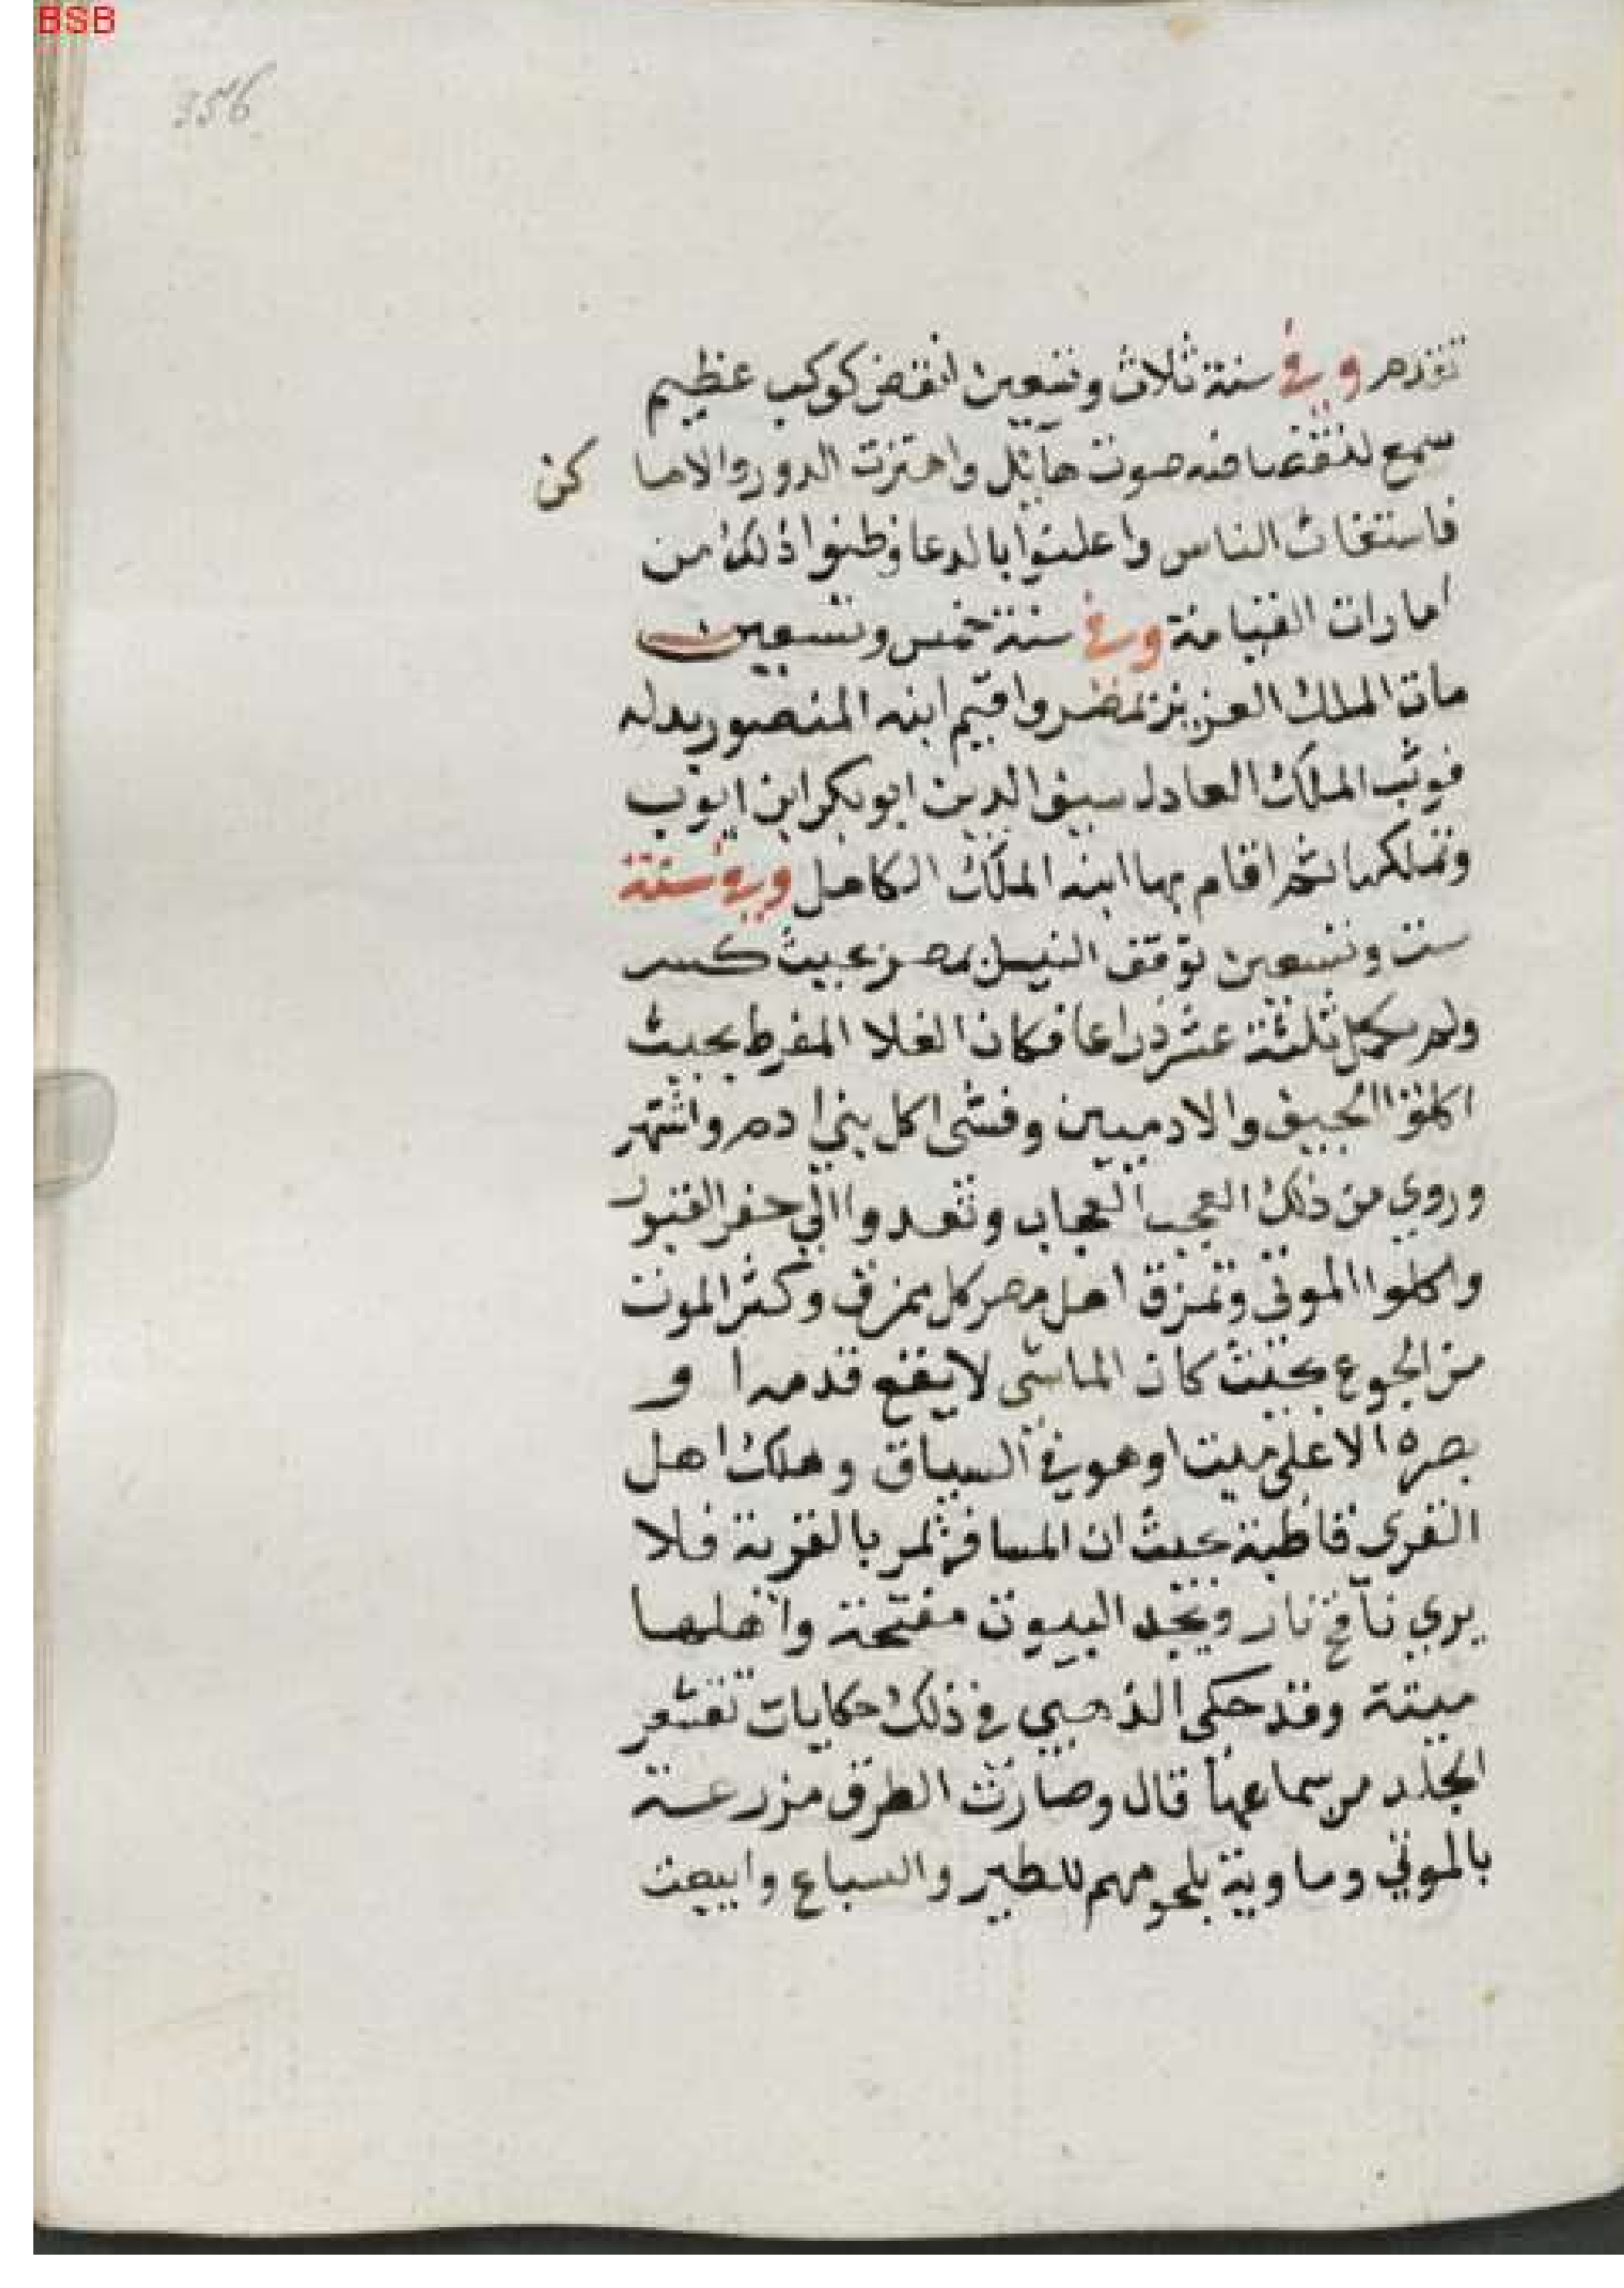 BSB
356
تقدم وفي سنة ثلاث وتسعين انقض كوكب عظيم
سمع لنقضاضه صوت هآئل واهتزت الدور والاما كن
فاستغاث الناس واعلنوا بالدعا وظنوا ذلك من
امارات القيامة وفي سنة خمس وتسعين
مات الملك العزيز بمصر واقيم ابنه المنصور بدله
فوثب الملك العادل سيف الدين ابو بكر ابن ايوب
وتملكها ثم اقام بها ابنه الملك الكامل وفي سنة
ست وتسعين توقف النيل بمصر بحيث كسر
ولم يكمل ثلثة عشر ذراعا فكان الغلا المفرط بحيث
اكلوا الجيف والادميين وفشى اكل بني ادم واشتهر
وروي من ذلك العجب العجاب وتعدوا الي حفر القبور
واكلوا الموتي وتمزق اهل مصر كل ممزق وكثر الموت
من الجوع بحيث كان الماشي لا يقع قدمه ا و
بصره الا على ميت او هو في السياق وهلك اهل
القري قاطبة بحيث ان المسافر يمر بالقرية فلا
يري نافخ نار ويجد البيوت مفتحة واهلها
ميتة وقد حكى الذهبي في ذلك حكايات تقشعر
الجلد من سماعها قال وصارت الطرق مزرعة
بالموتي وماوية بلحومهم للطير والسباع وابيعت